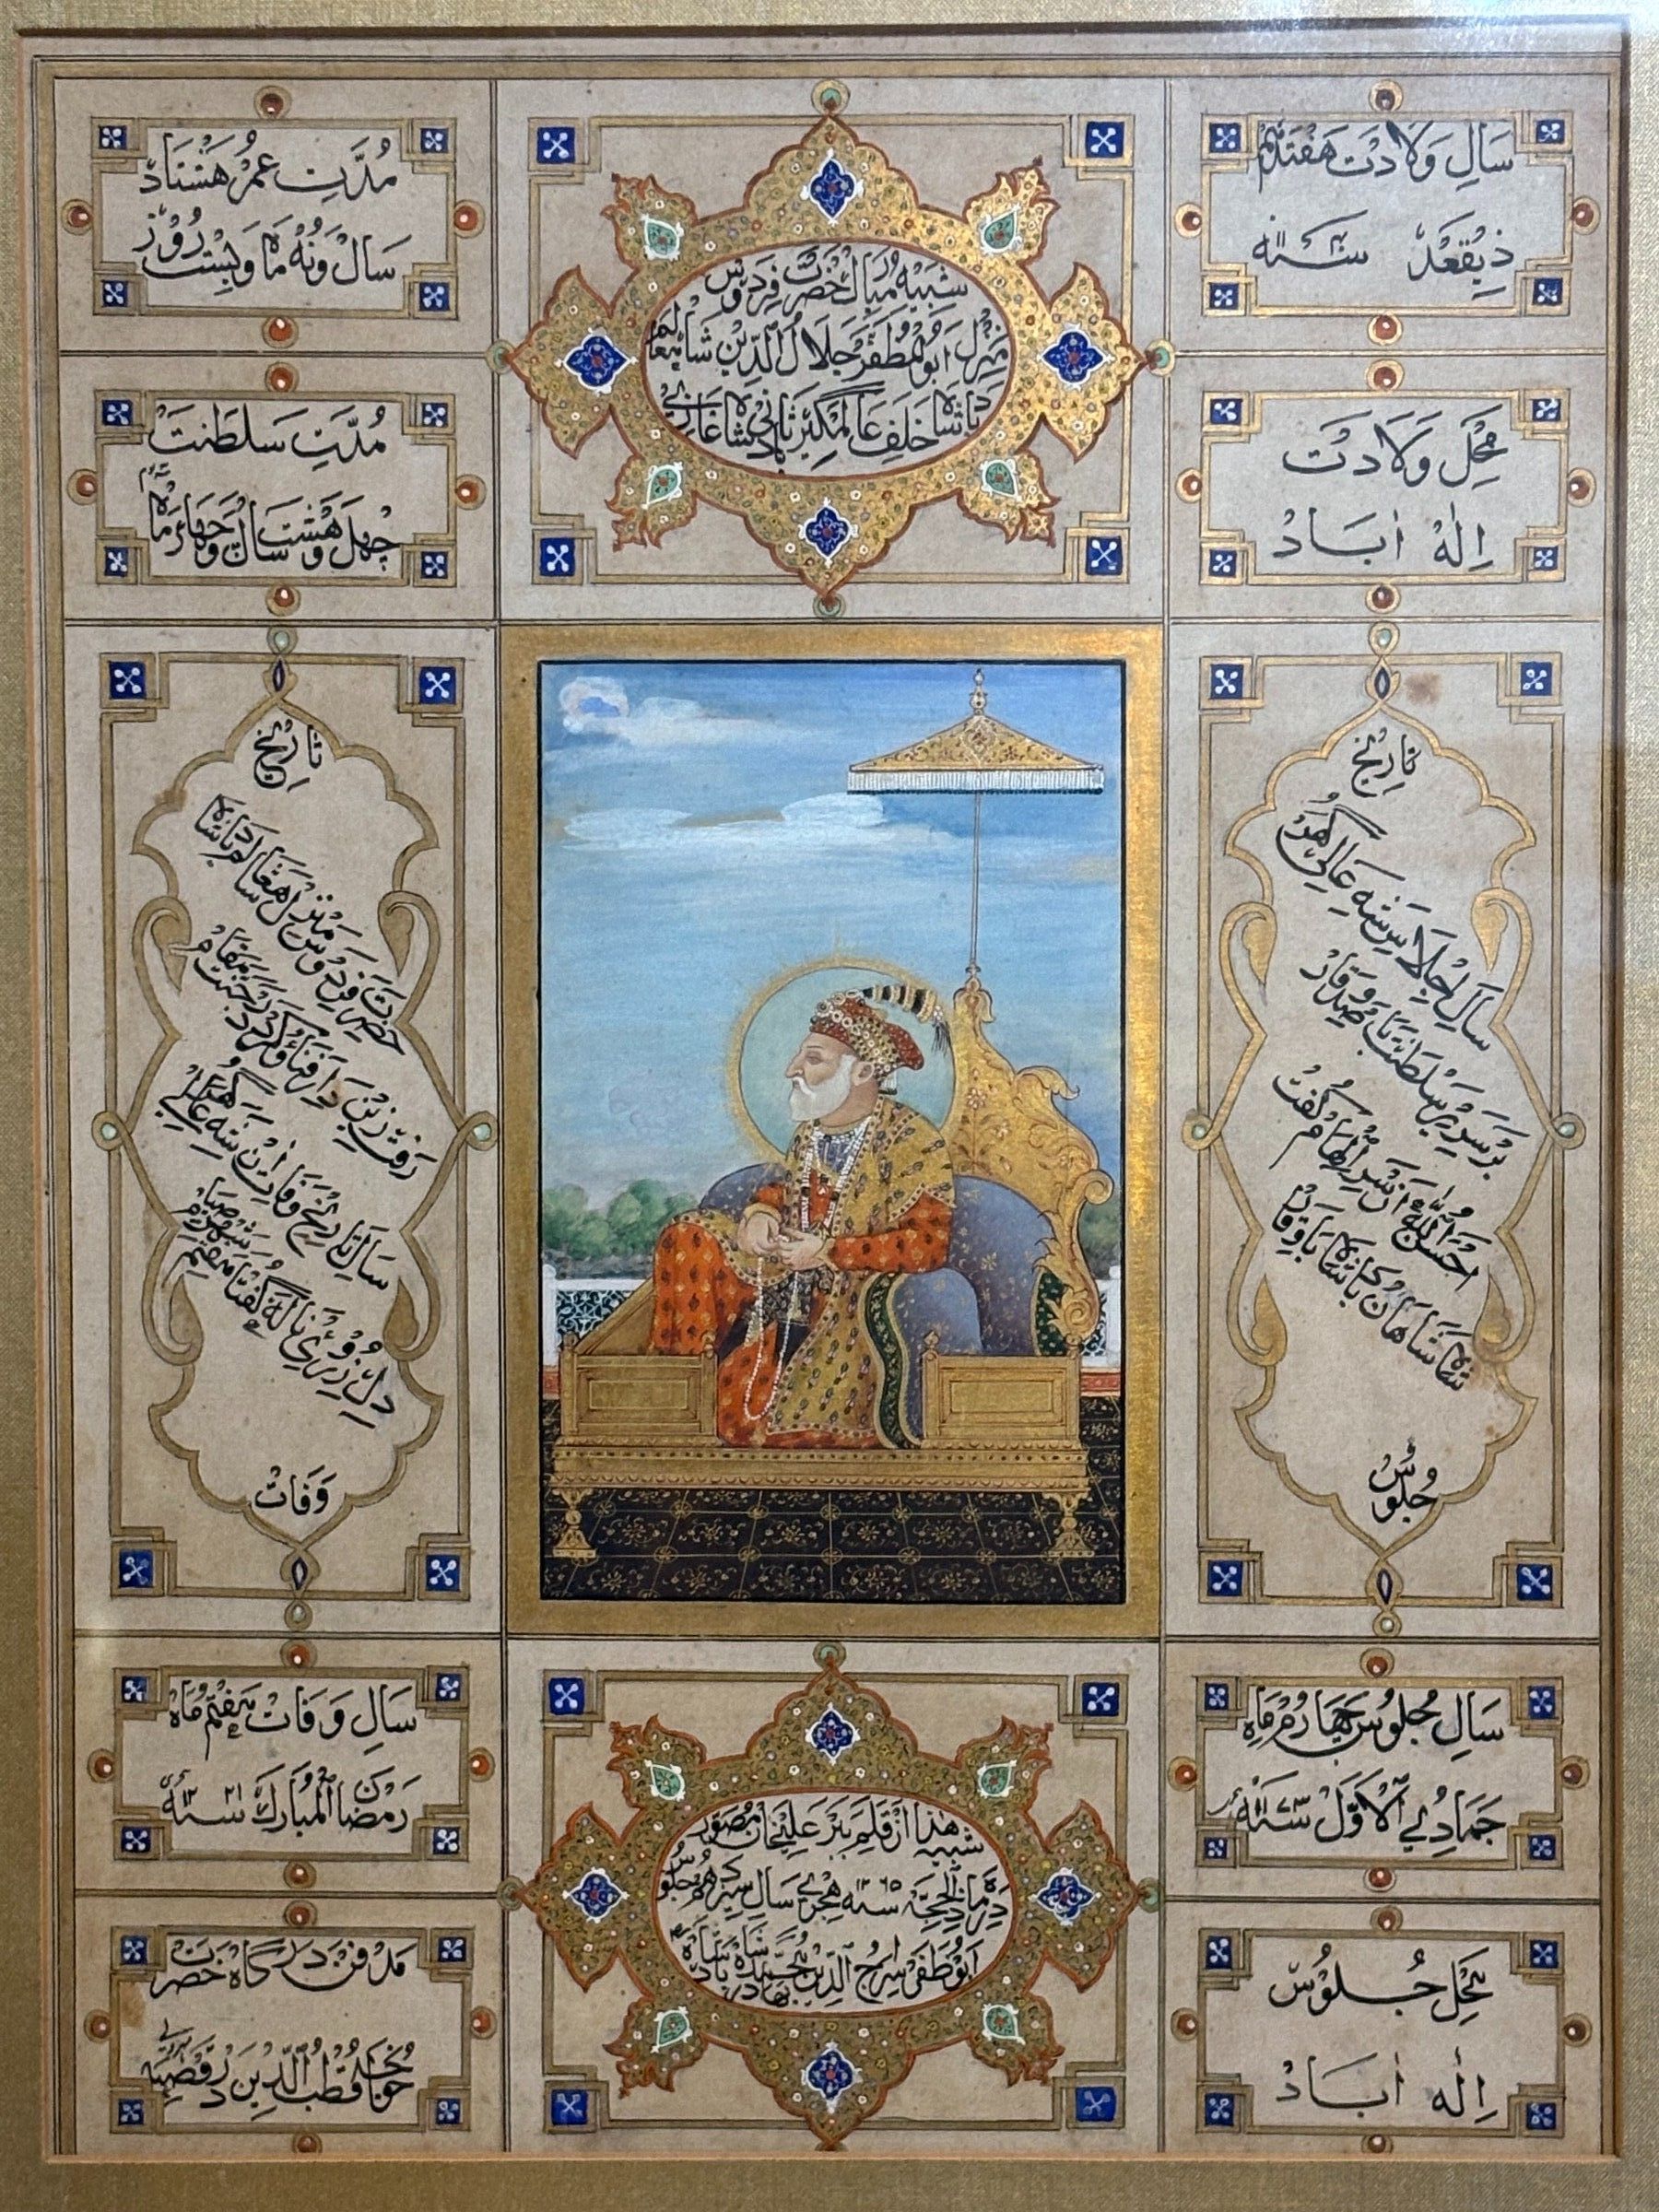 شبیه مبارک حضرت فردوس
منزل ابوالمظفر جلال الدین شاه عالم
بادشاه خلف عالمگیر ثانی بادشاه غازی
سال ولادت هفتدهم
ذیقعده سنه
محل ولادت
اله اباد
تاریخ
سال اجلاس شه عالی گهر
بر سریر سلطنت با صد وقار
احسن الله آن سر الهام گفت
شاه شاهان بادشاه با وقار
جلوس
سال جلوس چهارم ماه
جمادی الاول سنه ۱۱۷۳
محل جلوس
اله اباد
مدت عمر هشتاد
سال و نه ماه و بیست روز
مدت سلطنت
چهل و هشت سال و چهار ماه
تاریخ
حضرت فردوس منزل شاه عالم بادشاه
رفت زین دار فنا و کرد در جنت مقام
سال تاریخ وفات این شه عالی گهر
دل ز روی ناله گفتا هفتم شهر صیام
وفات
سال وفات هفتم ماه
رمضان المبارک سنه ۱۲۲۱
مدفن درگاه حضرت
خواجه قطب الدین در قصبه
شبیه هذا از قلم ببر علیخان مصور
در ماه ذی الحجه سنه ۱۲۶۵ هجری سال سیزدهم جلوس
ابو ظفر سراج الدین محمد بهادر شاه بادشاه